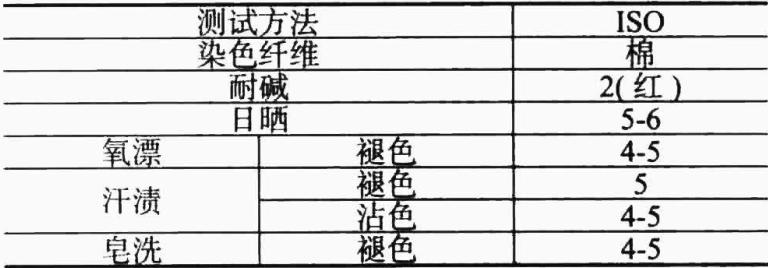 测试方法 ISO
染色纤维 棉
耐碱 2(红)
日晒 5-6
氧漂 褪色 4-5
汗渍 褪色 5
沾色 4-5
皂洗 褪色 4-5